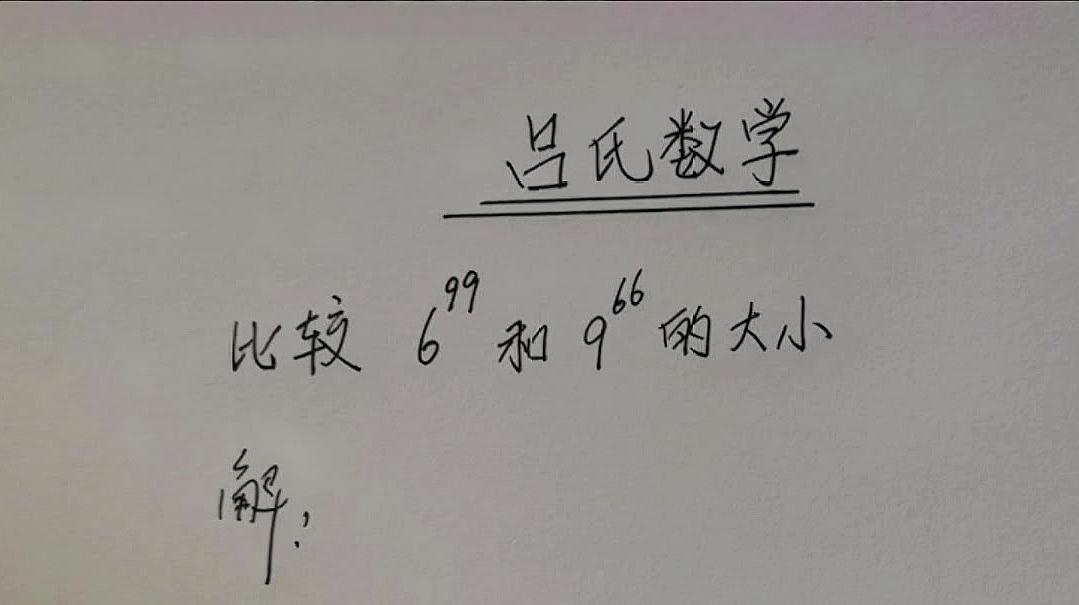 吕氏数学
比较 6^99 和 9^66 的大小
解：